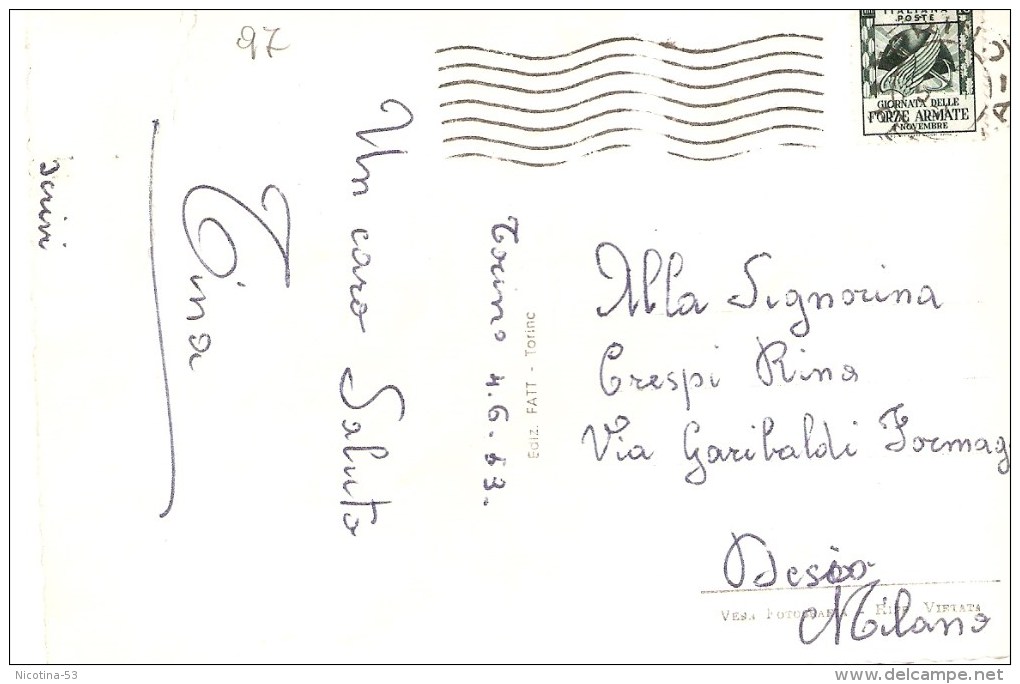 97
ITALIANA
POSTE
GIORNATA DELLE
FORZE ARMATE
4 NOVEMBRE
Un caro Saluto
Tina
Torino 4.6.53.
Ediz. FATT - Torino
Alla Signorina
Crespi Rina
Via Garibaldi Formag
Desio
Milano
VERA FOTOGRAFIA - RIP. VIETATA
Nicotina-53
delcampe.net